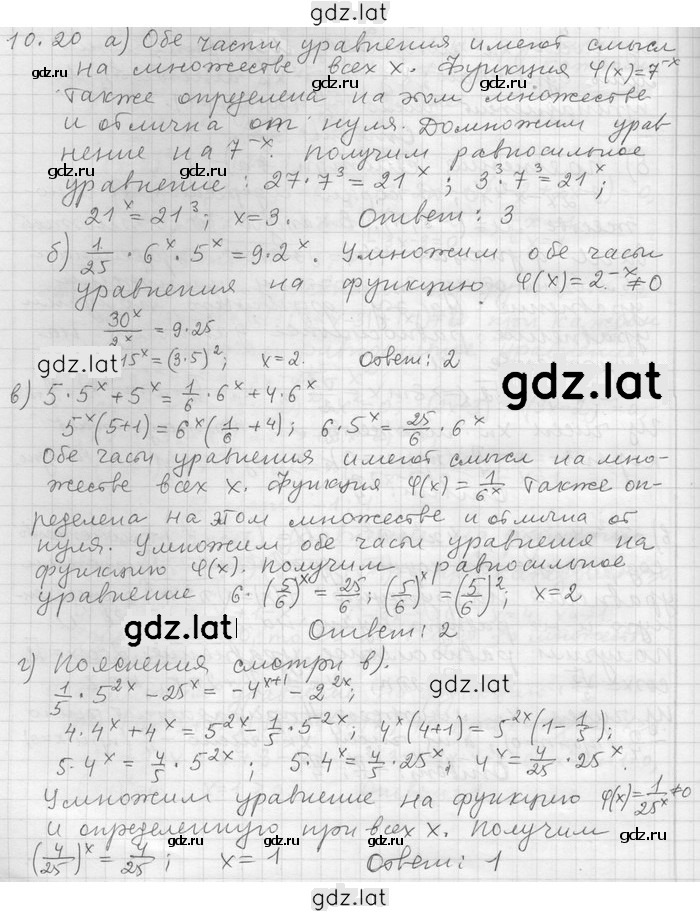 gdz.lat
10.20 а) Обе части уравнения имеют смысл
на множестве всех x. Функция φ(x)=7^-x
также определена на этом множестве
и отлична от нуля. Домножим урав-
нение на 7^-x. Получим равносильное
уравнение: 27·7^3=21^x; 3^3·7^3=21^x;
21^x=21^3; x=3. Ответ: 3
б) 1/25·6^x·5^x=9·2^x. Умножим обе часы
уравнения на функцию φ(x)=2^-x≠0
30^x/2^x=9·25
15^x=(3·5)^2; x=2. Ответ: 2
в) 5·5^x+5^x=1/6·6^x+4·6^x
5^x(5+1)=6^x(1/6+4); 6·5^x=25/6·6^x
Обе часы уравнения имеют смысл на мно-
жестве всех x. Функция φ(x)=1/6^x также оп-
ределена на этом множестве и отлична от
нуля. Умножим обе часы уравнения на
функцию φ(x). Получим равносильное
уравнение 6·(5/6)^x=25/6; (5/6)^x=(5/6)^2; x=2
Ответ: 2
г) Пояснения смотри в).
1/5·5^2x-25^x=-4^x+1-2^2x;
4·4^x+4^x=5^2x-1/5·5^2x; 4^x(4+1)=5^2x(1-1/5);
5·4^x=4/5·5^2x; 5·4^x=4/5·25^x; 4^x=4/25·25^x.
Умножим уравнение на функцию φ(x)=1/25^x≠0
и определенную при всех x. Получим
(4/25)^x=4/25; x=1 Ответ: 1
gdz.lat